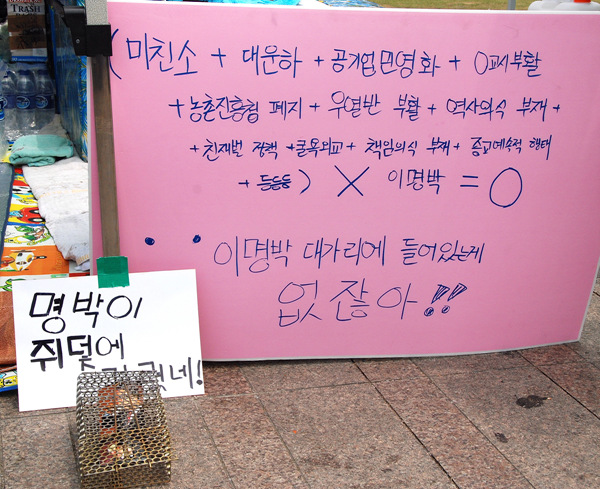 TRASH
(미친소 + 대운하 + 공기업민영화 + 0교시부활
+ 농촌진흥청 폐지 + 우열반 부활 + 역사의식 부재 +
+ 친재벌 정책 + 굴욕외교 + 책임의식 부재 + 종교예속적 행태
+ 등등등) × 이명박 = 0
∴ 이명박 대가리에 들어있는게
없잖아!!
명박이
쥐덫에
네!